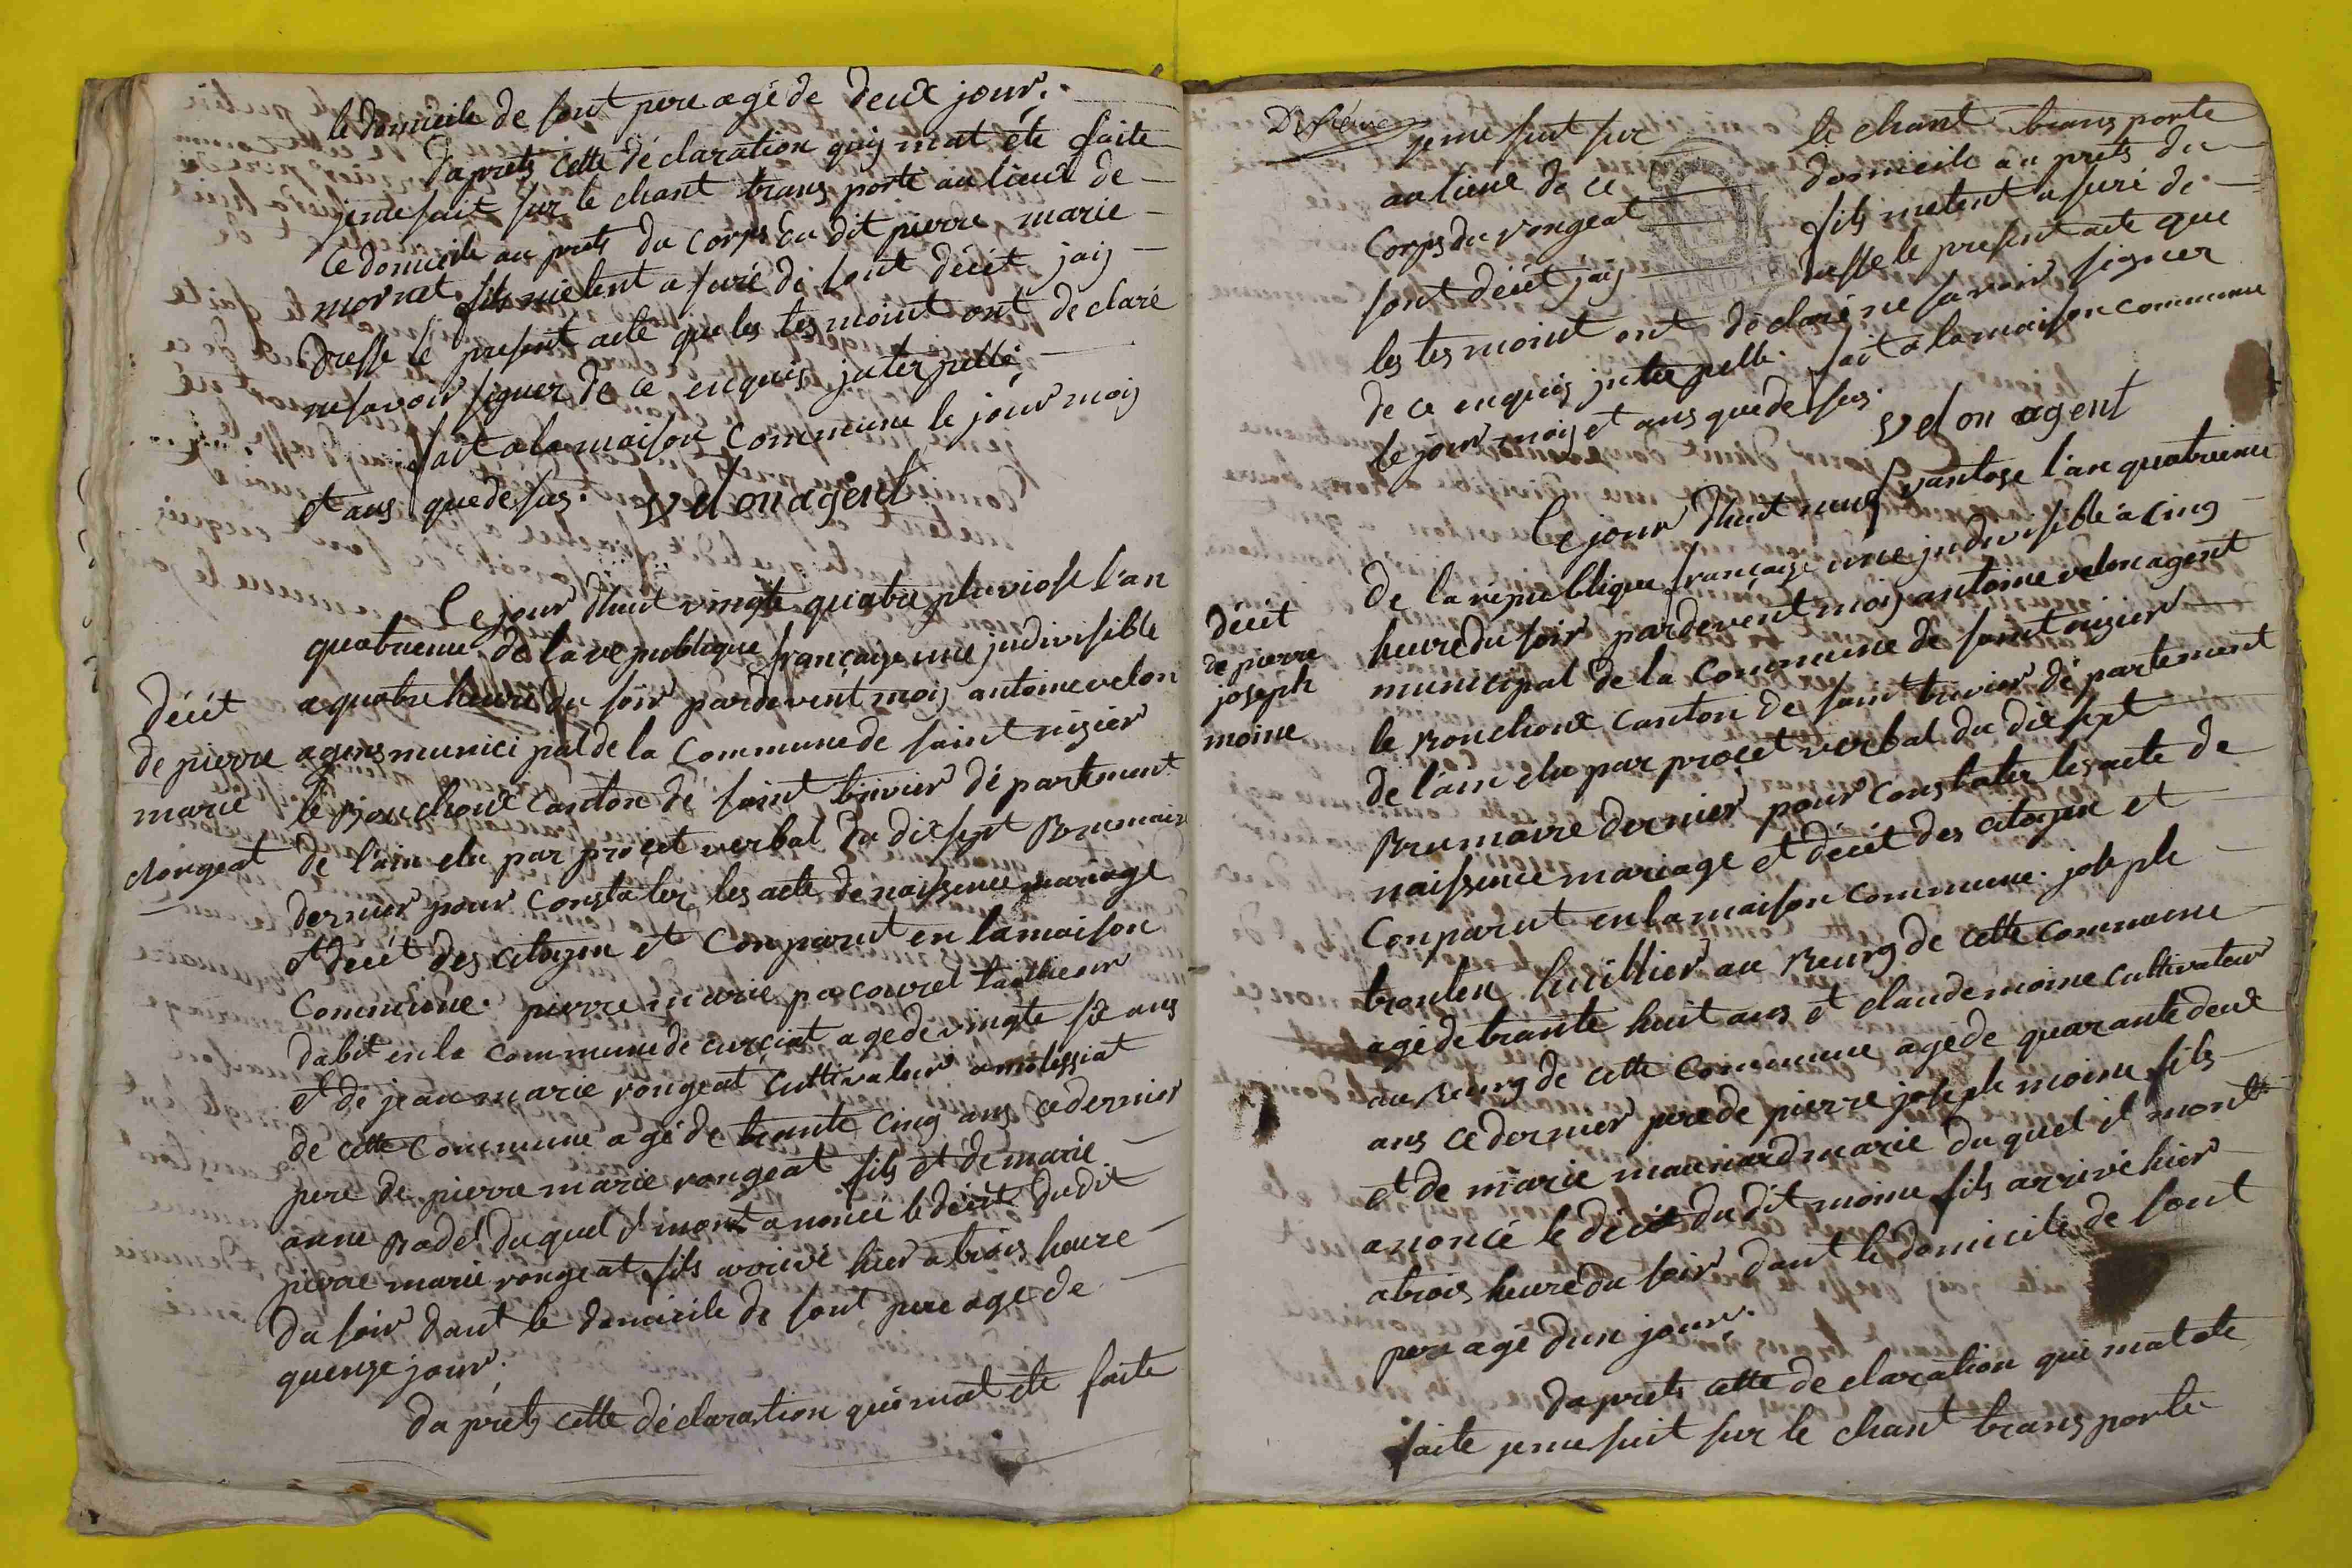 le domicile de sont pere agé de deux jour.
daprets cette déclaration quij mat été faite
jeme suit sur le chant trans porté au lieux de
ce domicile au prets du corps du dit pierre marie
mornet fils metent a suré de sont décét jaij
dresse le present acte que les tes moint ont declaré
ne savoir signer de ce enquis jnter pellé
fait a la maison commune le jour mois
et ans que desus. velon agent
Ce jour dhuit vingte quatre pluviose l'an
quatrieme de la republique française une jndivisible
a quatre heure du soir pardevent moij antoine velon
agens munici pal de la commune de saint nisier
le Bouchoux canton de saint trivier dé partement
de l'ain elu par procet verbal du dix sept Brumaire
dernier pour constater les acte de naissence mariage
et décét des citoyen et Conparut en la maison
Commune. pierre marie pacouret taillieur
dabit en la commune de curciat age de vingte six ans
et de jean marie rongeat cultivateur a molissiat
de cette commune agé de trante cinq ans ce dernier
pere de pierre marie rongeat fils et de marie
anne Badel duquel il mont anoncé le décét dudit
pierre marie rongeat fils arrivé hier a trois heure
du soir dant le domicile de sont pere age de
quenze jour.
da prets cette déclaration qui mat été faite
décét
de pierre
marie
rongeat
jeme suit sur le chant trans porte
au lieue de ce domicile au prets du
Corps du rongeat fils metent a suré de
sont décét jaij dresse le present acte que
les tes moint ont déclaré ne savoir signer
de ce enquis jnter pellé. fait a la maison commune
le jour mois et ans que desus.
velon agent
Ce jour dhuit neuf vantose l'an quatrieme
de la republique française une jndivisible a cinq
heure du soir pardevent moij antoine velon agent
municipal de la commune de saint nisier
le Bouchoux canton de saint trivier dé partement
de l'ain elu par procet verbal du dix sept
Brumaire dernier pour constater les acte de
naissence mariage et décét des citoyen et
Conparut en la maison commune. joseph
huillier au Bourg de cette commune
agé de trante huit ans et claude moine cultivateur
au Bourg de cette commune agé de quarante deux
ans ce dernier pere de pierre joseph moine fils
et de marie maunard marie duquel il mont
anoncé le décét du dit moine fils arrivé hier
a trois heure du soir dant le domicile de sont
pere agé dun jour.
da prets cette declaration qui mat ete
faite jeme suit sur le chant trans porte
décét
de pierre
joseph
moine